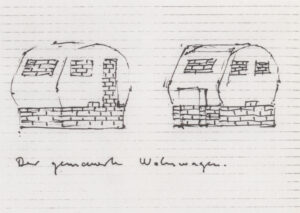 Der gemauerte Wohnwagen.